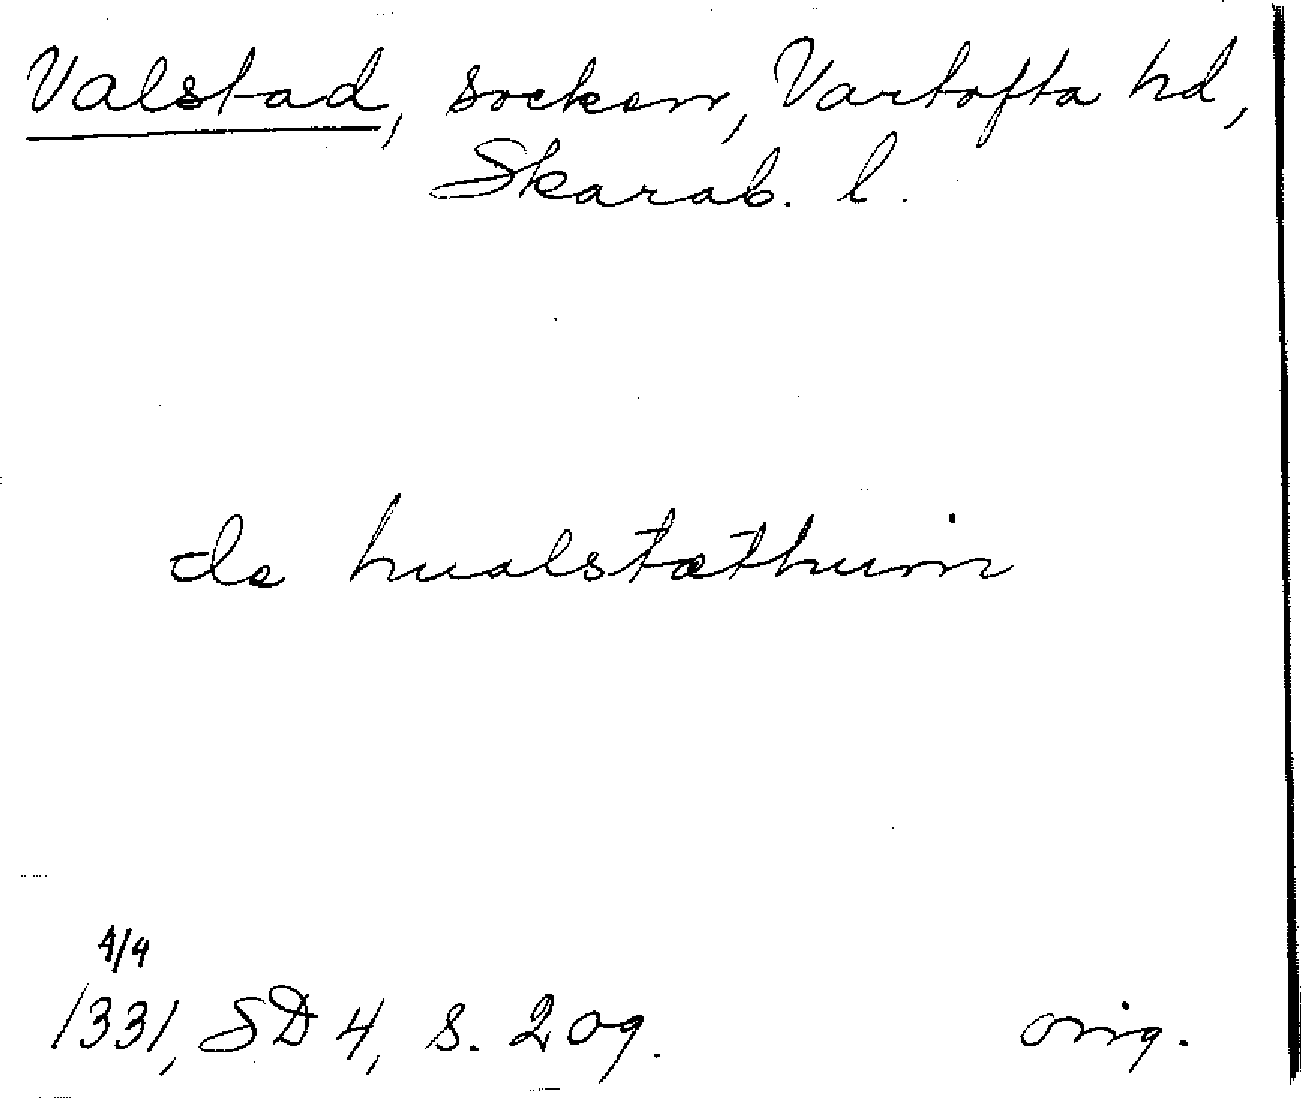 Valstad, socken, Vartofta hd,
Skarab. l.
de hualstæthum
4/4
1331, SD 4, s. 209.
orig.